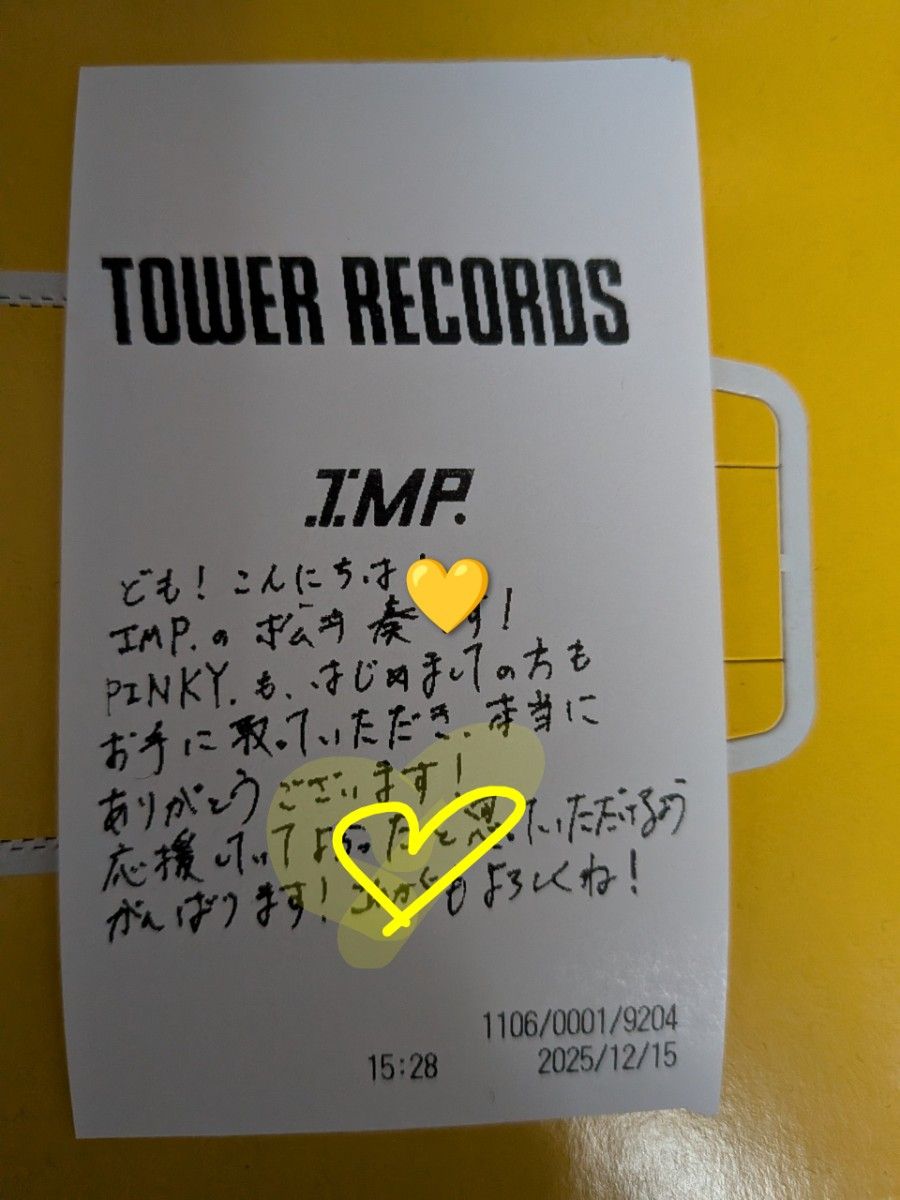 TOWER RECORDS
I.MP.
ども！こんにちは！
IMP.の松井 奏です！
PINKY.も、はじめましての方も
お手に取っていただき、本当に
ありがとうございます！
応援していてよかったと思っていただけるよう
がんばります！これからもよろしくね！
1106/0001/9204
15:28 2025/12/15